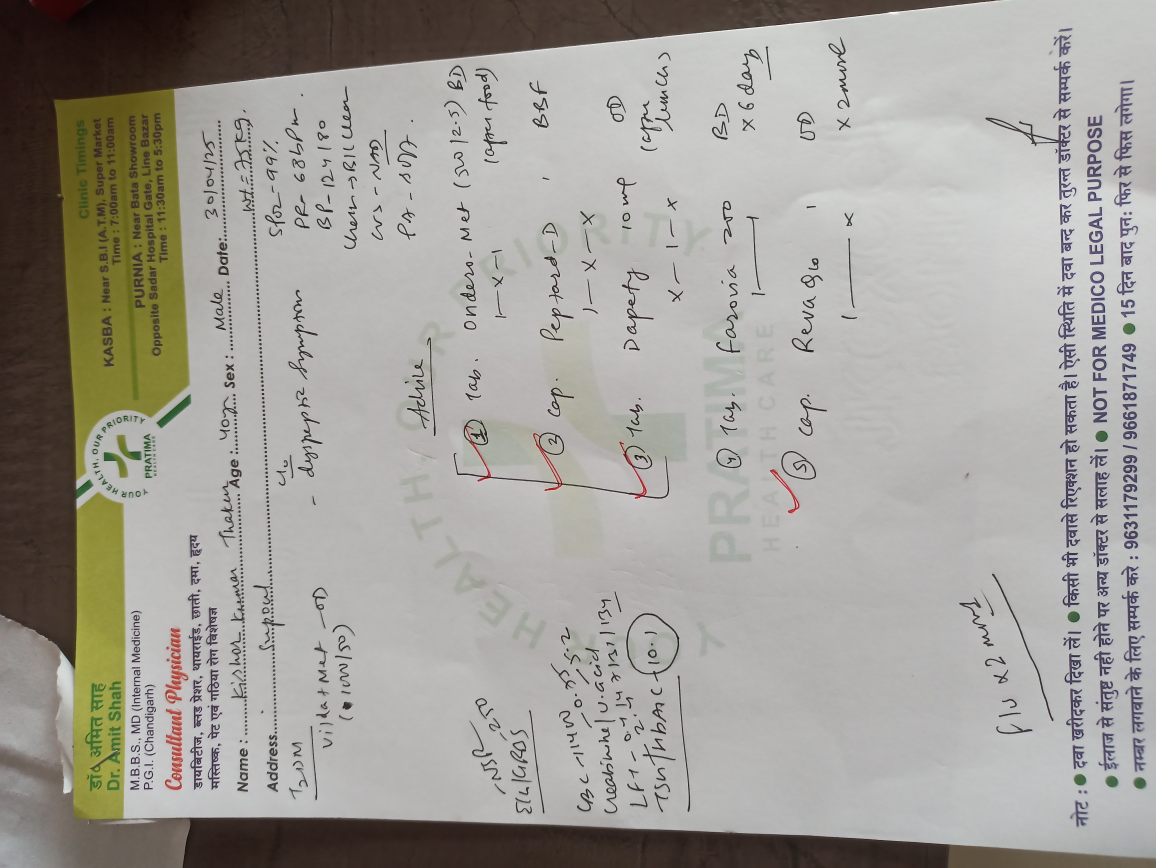 डॉ॰ अमित साह
Dr. Amit Shah
M.B.B.S., MD (Internal Medicine)
P.G.I. (Chandigarh)
Consultant Physician
डायबिटीज, ब्लड प्रेशर, थायराईड, छाती, दमा, हृदय
मस्तिष्क, पेट एवं गठिया रोग विशेषज्ञ
YOUR HEALTH, OUR PRIORITY
PRATIMA
Clinic Timings
KASBA : Near S.B.I (A.T.M), Super Market
Time : 7:00am to 11:00am
PURNIA : Near Bata Showroom
Opposite Sadar Hospital Gate, Line Bazar
Time : 11:30am to 5:30pm
Name : Kishor Kumar Thakur Age : 40yr Sex : Male Date: 30/04/25
Address Supoul Wt = 75kg.
T2DM
Vilda+Met - OD
c/o
- dyspeptic symptoms
SPO2 - 99%
PR - 68bPm.
BP - 124/80
Chest → B/L Clear
CVS - NAD
Advice
1 Tab. Ondero-Met (500/2.5) BD
1-x-1 (after food)
2 Cap. Peptard-D , BBF
1-x-x
3 Tab. Dapefy 10mg OD
x-1-x (after lunch)
4 Tab. Farovia 200 BD
1 — 1 x 6 days
5 Cap. Reva Q10 1 OD
1 — x x 2 month
250
CBC - 11400
Creatinine/U.acid
LFT
TSH/HbA1c - 10.1
F/U x 2 month
YOUR HEALTH, OUR PRIORITY
PRATIMA
HEALTH CARE
नोट : ● दवा खरीदकर दिखा लें। ● किसी भी दवासे रिएक्शन हो सकता है। ऐसी स्थिति में दवा बन्द कर तुरन्त डॉक्टर से सम्पर्क करें।
● ईलाज से संतुष्ट नही होने पर अन्य डॉक्टर से सलाह लें। ● NOT FOR MEDICO LEGAL PURPOSE
● नम्बर लगवाने के लिए सम्पर्क करे : 9631179299 / 9661871749 ● 15 दिन बाद पुनः फिर से फिस लगेगा।